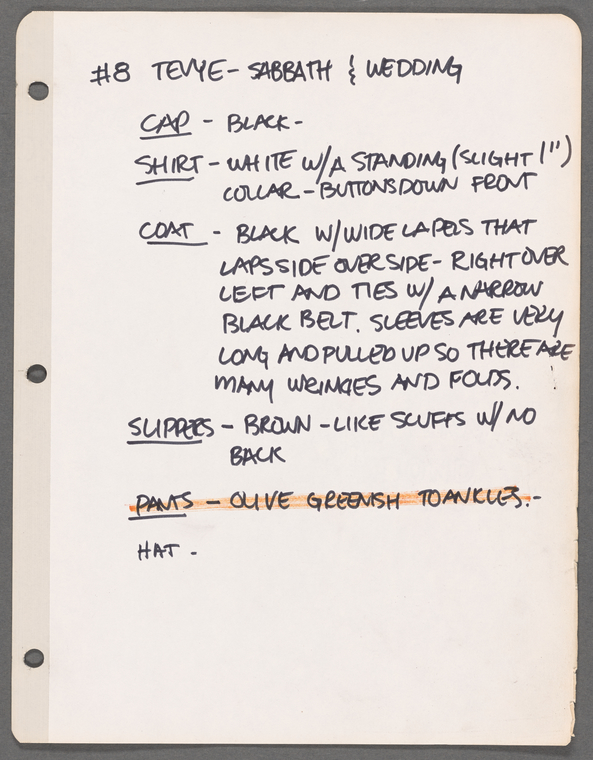 #8 TEVYE - SABBATH & WEDDING
CAP - BLACK -
SHIRT - WHITE W/A STANDING (SLIGHT 1")
COLLAR - BUTTONS DOWN FRONT
COAT - BLACK W/WIDE LAPELS THAT
LAPS SIDE OVER SIDE - RIGHT OVER
LEFT AND TIES W/ A NARROW
BLACK BELT. SLEEVES ARE VERY
LONG AND PULLED UP SO THERE ARE
MANY WRINKLES AND FOLDS.
SLIPPERS - BROWN - LIKE SCUFFS W/ NO
BACK
PANTS - OLIVE GREENISH TO ANKLES. -
HAT -